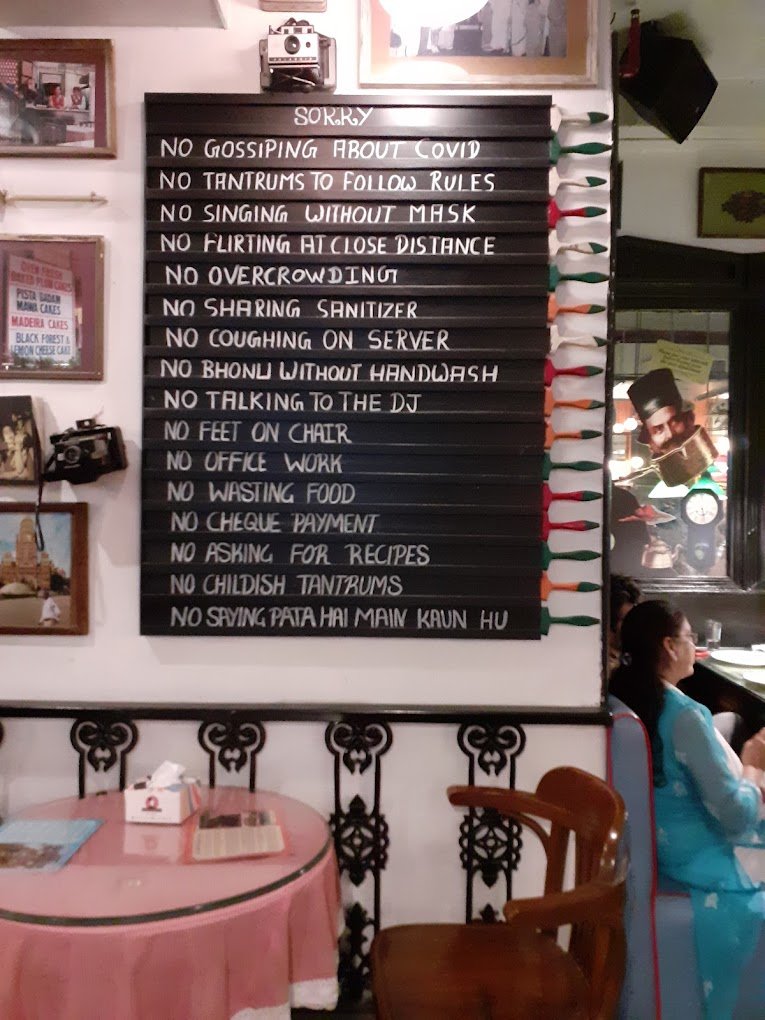 SORRY
NO GOSSIPING ABOUT COVID
NO TANTRUMS TO FOLLOW RULES
NO SINGING WITHOUT MASK
NO FLIRTING AT CLOSE DISTANCE
NO OVERCROWDING
NO SHARING SANITIZER
NO COUGHING ON SERVER
NO BHONU WITHOUT HANDWASH
NO TALKING TO THE DJ
NO FEET ON CHAIR
NO OFFICE WORK
NO WASTING FOOD
NO CHEQUE PAYMENT
NO ASKING FOR RECIPES
NO CHILDISH TANTRUMS
NO SAYING PATA HAI MAIN KAUN HU
OVEN FRESH
BAKED PLUM CAKES
PISTA BADAM
MAWA CAKES
MADEIRA CAKES
BLACK FOREST &
LEMON CHEESE CAKE